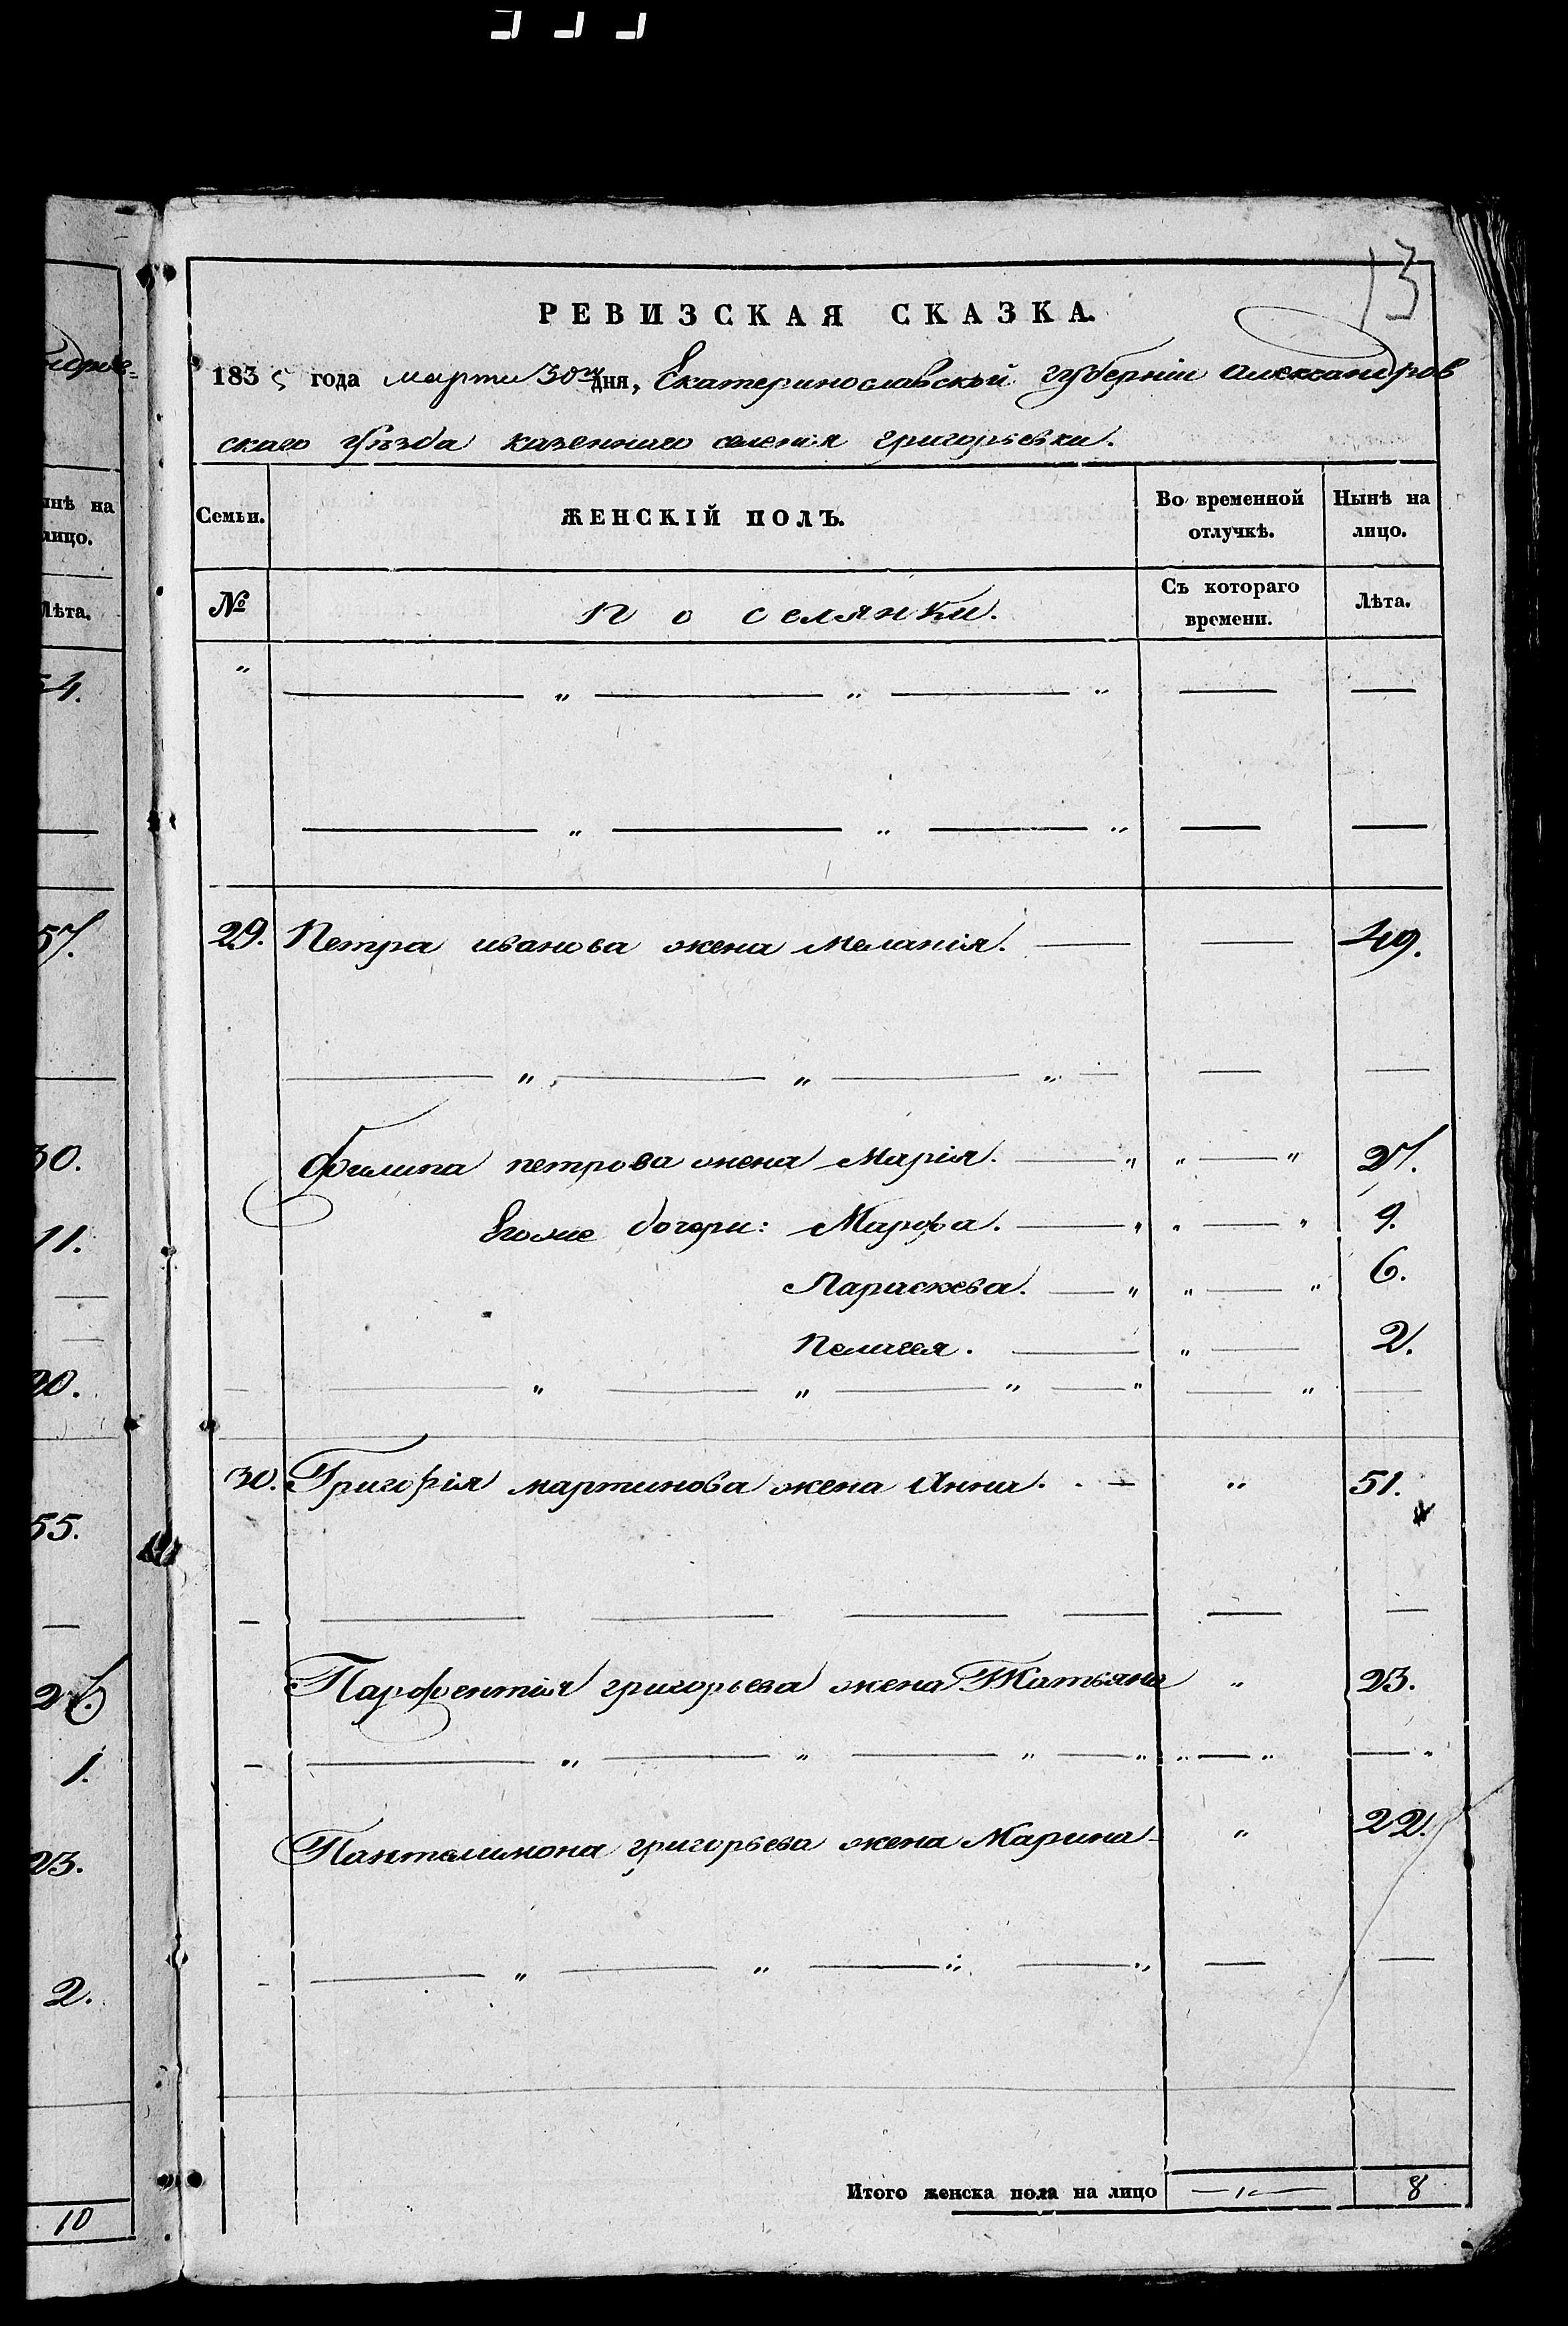 13
РЕВИЗСКАЯ СКАЗКА.
1835 года марта 30го дня, Екатеринославской губернiи Александров
скаго уѣзда казеннаго селенiя григорьевки.
Семьи. ЖЕНСКIЙ ПОЛЪ. Во временной отлучкѣ. Нынѣ на лицо.
№ поселянки. Съ котораго времени. Лѣта.
29. Петра иванова жена Меланiя. 49.
Филипа петрова жена Марiя. 27.
Егоже дочери: Марфа. 9.
Параскева. 6.
Пелагея. 2.
30. Григорiя мартинова жена Анна. 51.
Парфентiя григорьева жена Татьяна 23.
Пантелимона григорьева жена Марина 22.
Итого женска пола на лицо 8
нѣ на
лицо.
Лѣта.
54.
57.
30.
11.
20.
55.
1.
23.
2.
10